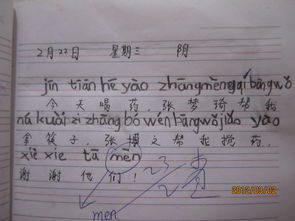 2月22日 星期三 阴
jīn tiān hē yào zhāng mèng qí bāng wǒ
今天喝药,张梦琦帮我
ná kuài zi zhāng bó wén bāng wǒ jiǎn yào
拿筷子,张博文帮我捡药。
xiè xie tā men
谢谢他们!
23
men
2012/03/02